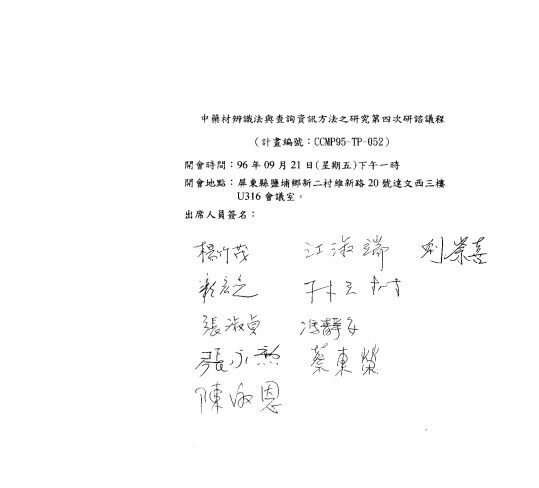 中藥材辨識法與查詢資訊方法之研究第四次研諮議程
(計畫編號：CCMP95-TP-052)
開會時間：96 年 09 月 21 日(星期五)下午一時
開會地點：屏東縣鹽埔鄉新二村維新路 20 號達文西三樓
U316 會議室。
出席人員簽名：
楊竹茂 江淑端 劉崇喜
林立
張淑貞 馮靜
張永勲 蔡東榮
陳淑恩